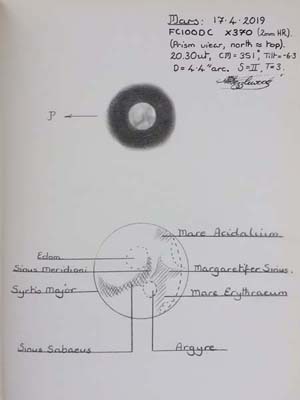 Mars: 17.4.2019
FC100DC x370 (2mm HR).
(Prism view, north ≈ top).
20.30ut, CM=351°, Tilt=-6.3
D=4.4"arc. S=II, T=3.
P
Mare Acidalium
Edom
Sinus Meridiani
Margaritifer Sinus.
Syrtis Major
Mare Erythraeum
Sinus Sabaeus
Argyre